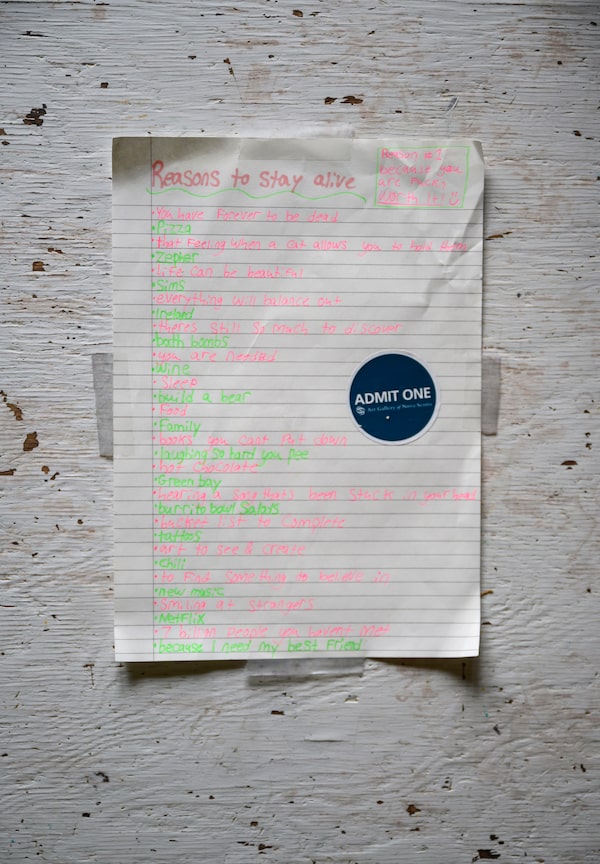 Reasons to stay alive
Reason #1
because you
are
worth it!
•You have forever to be dead
•Pizza
•that feeling when a cat allows you to hold them
•Zepter
•life can be beautiful
•Sims
•everything will balance out
•Ireland
•theres still so much to discover
•bath bombs
•you are needed
•Wine
•Sleep
•build a bear
•Food
•Family
•books you cant put down
•laughing so hard you pee
•hot chocolate
•Green bay
•hearing a song thats been stuck in your head
•burrito bowl salads
•bucket list to complete
•tattoos
•art to see & create
•chili
•to find something to believe in
•new music
•Smiling at strangers
•Netflix
•7 billion people you havent met
•because I need my best friend
ADMIT ONE
Art Gallery of Nova Scotia